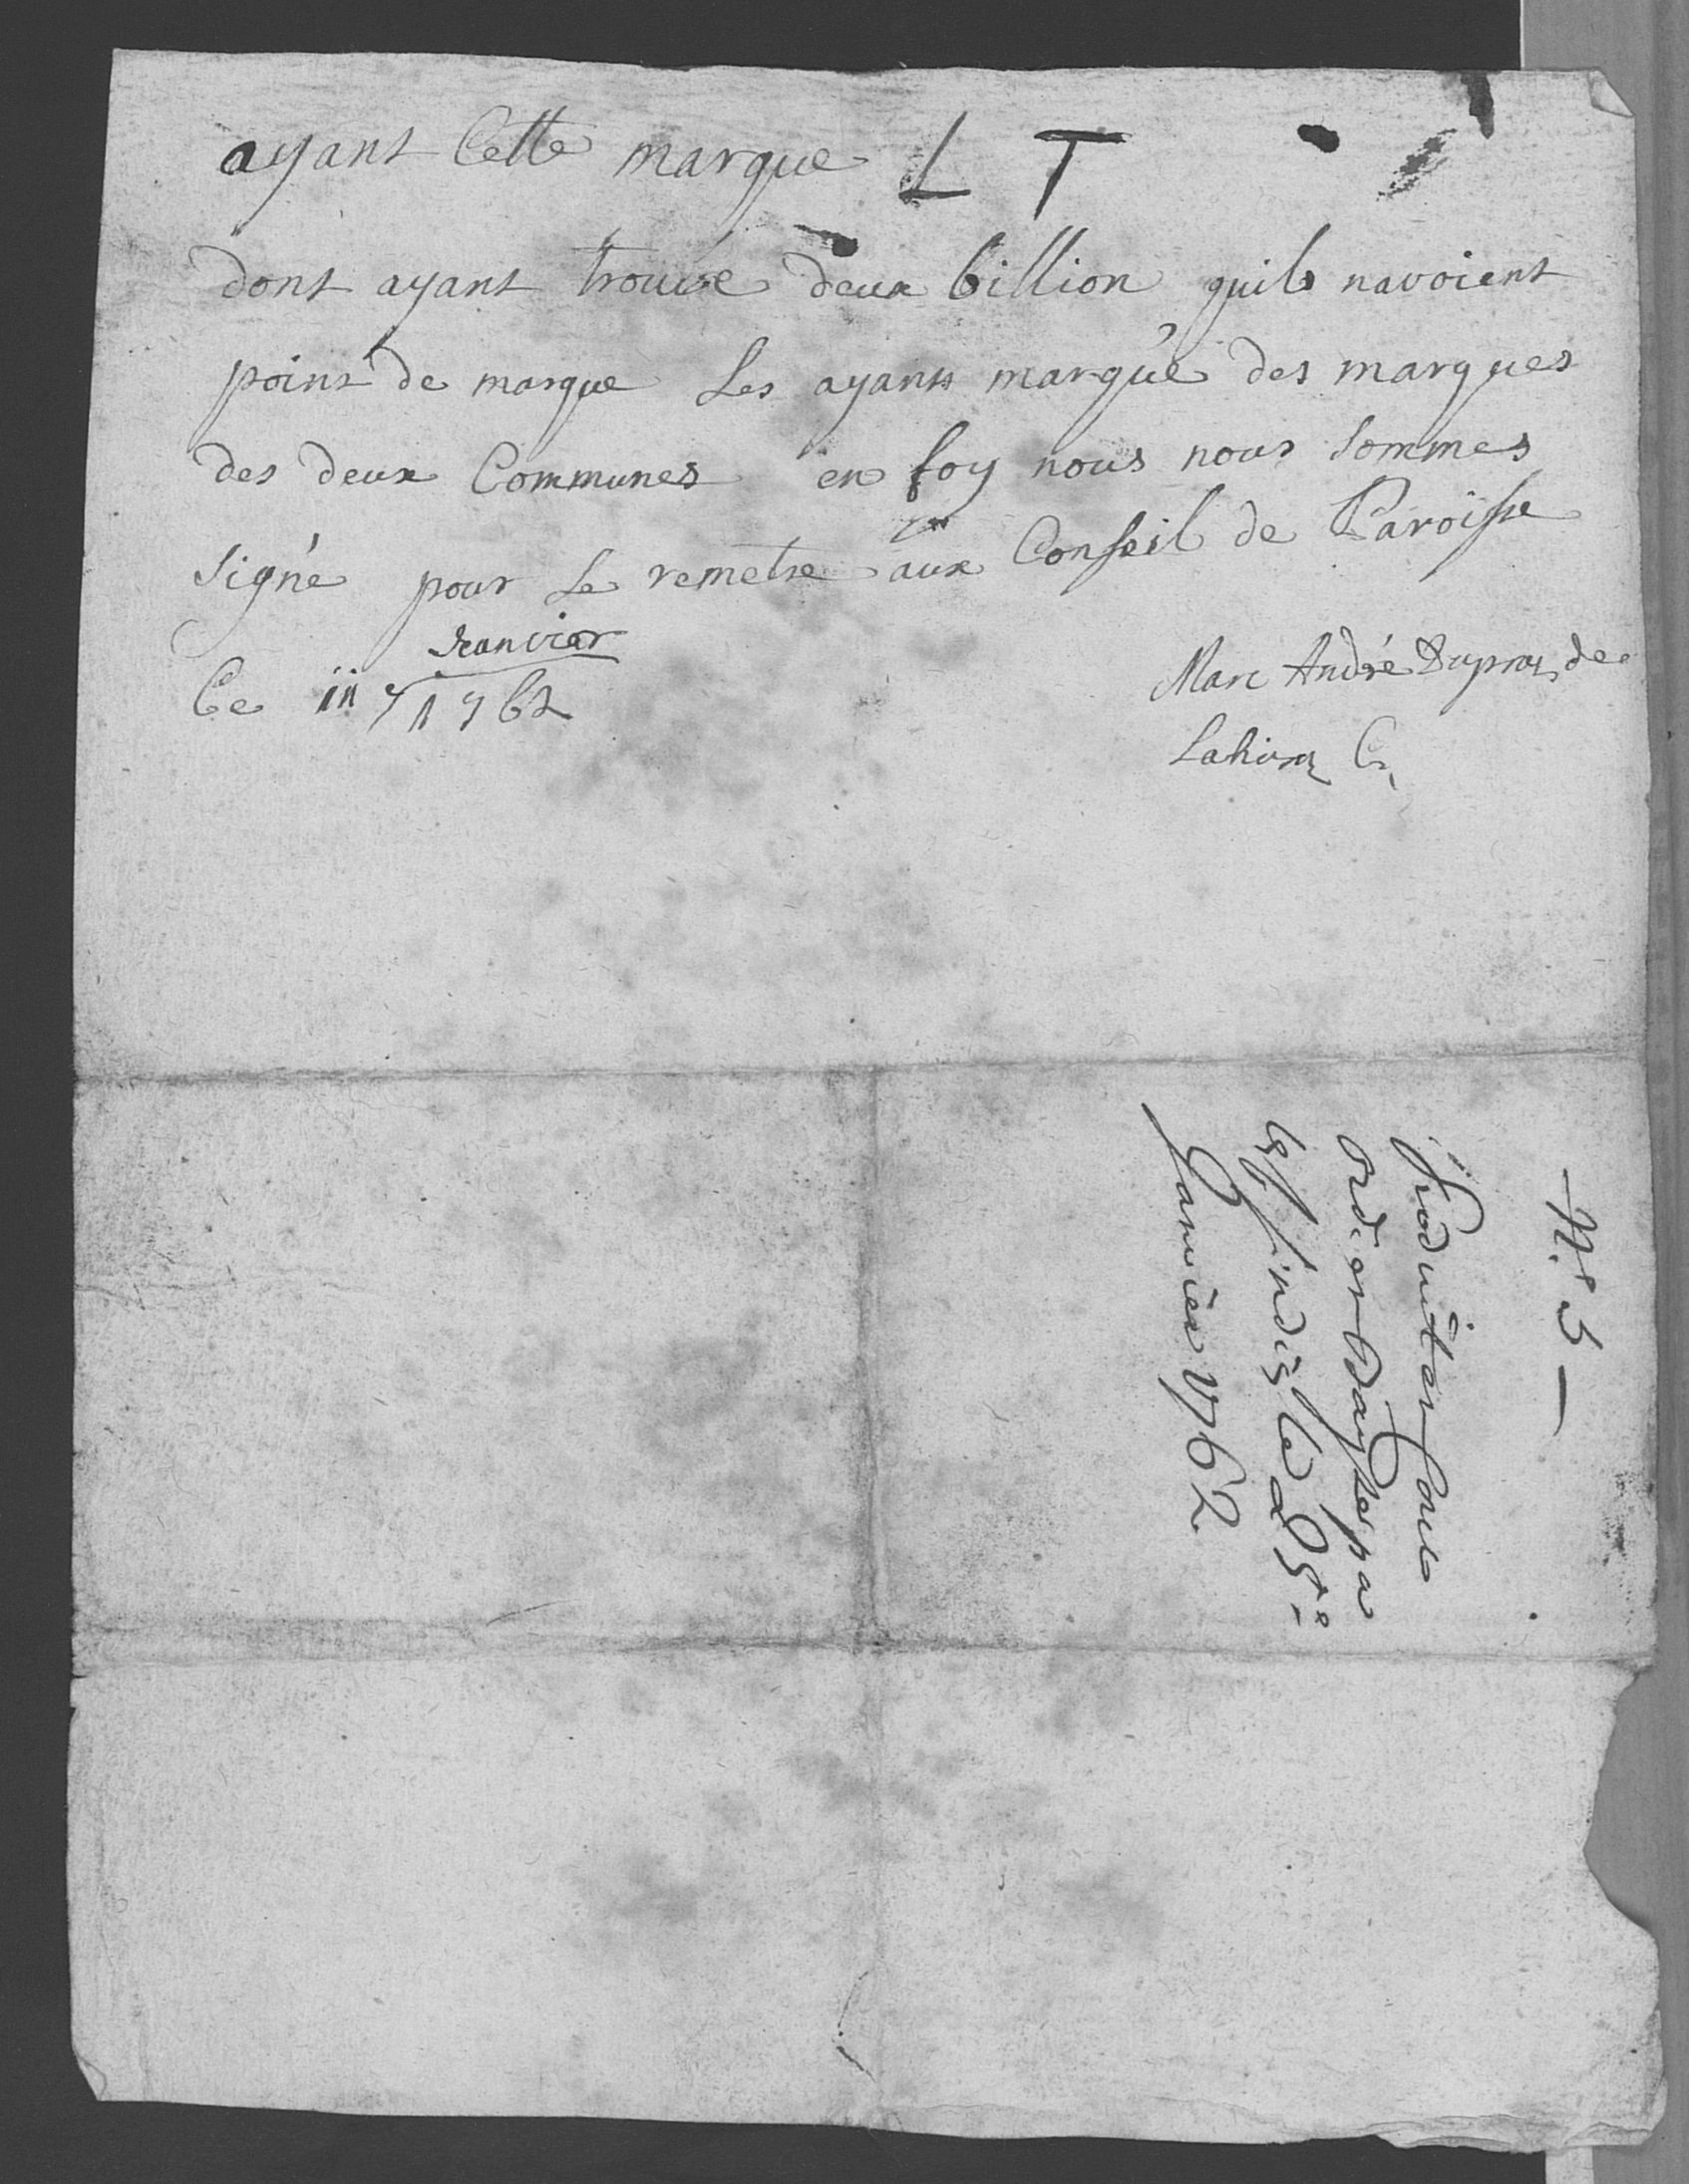 ayant Cette marque L T
dont ayant trouvé deux billion quils navoient
point de marque Les ayants marqué des marques
des deux Communes en foy nous nous sommes
signé pour Le remetre aux Conseil de Paroisse
Janvier
Ce 11 1762
Marc André Dupraz de
C.
N.o 5
produitte
par
le 25e
Janvier 1762